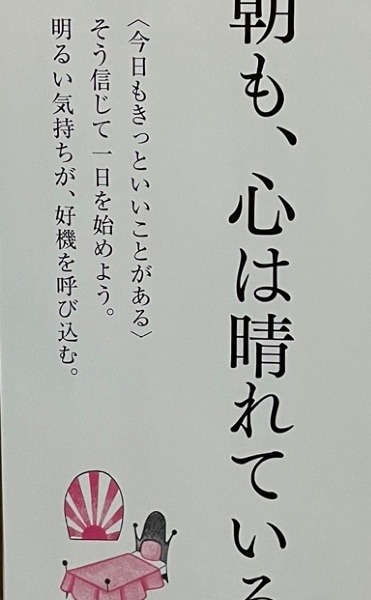 朝も、心は晴れている
〈今日もきっといいことがある〉
そう信じて一日を始めよう。
明るい気持ちが、好機を呼び込む。